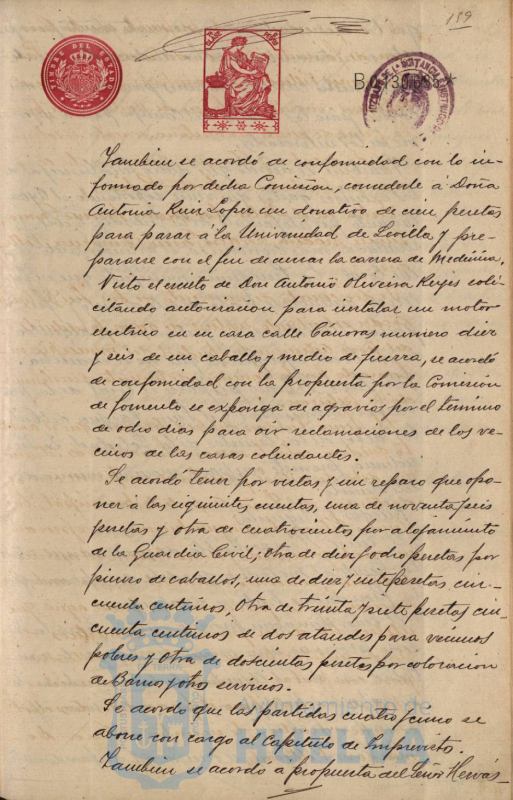 159
TIMBRE DEL ESTADO
También se acordó de conformidad con lo in-
formado por dicha Comision, concederle á Doña
Antonia Ruiz Lopez un donativo de cien pesetas
para pasar á la Universidad de Sevilla y pre-
pararse con el fin de cursar la carrera de Medicina.
Visto el escrito de Don Antonio Oliveira Reyes soli-
citando autorizacion para instalar un motor
electrico en su casa calle Cánovas numero diez
y seis de un caballo y medio de fuerza, se acordó
de conformidad con la propuesta por la Comision
de fomento se exponga de agravios por el termino
de ocho dias para oir reclamaciones de los ve-
cinos de las casas colindantes.
Se acordó tener por vistas y sin reparo que opo-
ner á las siguientes cuentas, una de noventa y seis
pesetas y otra de cuatrocientos por alojamiento
de la Guardia Civil; otra de diez y ocho pesetas por
pienso de caballos, una de diez y siete pesetas cin-
cuenta centimos, otra de treinta y siete pesetas cin-
cuenta centimos de dos ataudes para vecinos
pobres y otra de doscientas pesetas por colocacion
de Bancos y otros servicios.
Se acordó que las partidas cuatro y cinco se
abone con cargo al Capitulo de Imprevistos.
Tambien se acordó á propuesta del Señor Hervás
Ayuntamiento de
HUELVA